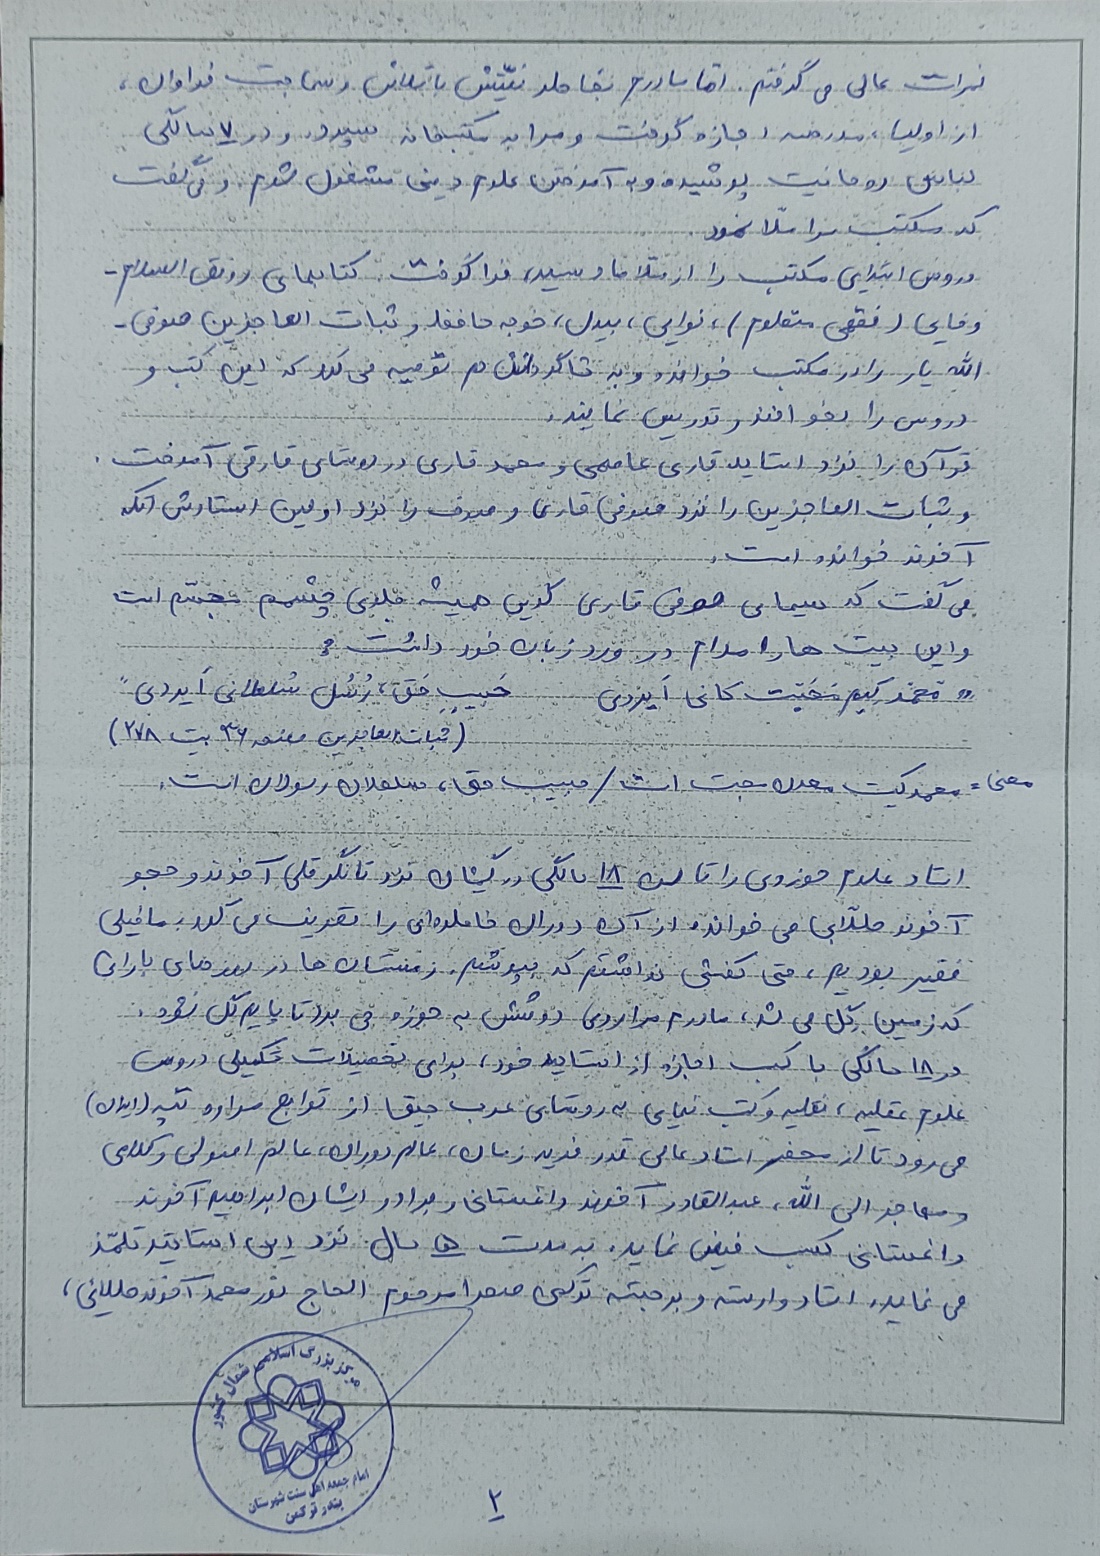 نمرات عالی می گرفتم. امّا مادرم بنا به نیّتش با تلاش و سماجت فراوان،
از اولیاء مدرسه اجازه گرفت و مرا به مکتبخانه سپرد. و در ۷ سالگی
لباس روحانیت پوشیده و به آموختن علوم دینی مشغول شدم. و می گفت
که مکتب مرا ملّا نمود.
دروس ابتدایی مکتب را از ملا فرا گرفت. کتابهای رونق الاسلام -
وفایی (فقهی منظوم)، نوایی، بیدل، خوجه حافظ و ثبات العاجزین صوفی -
الله یار را در مکتب خوانده و به شاگردانش هم توصیه می کرد که این کتب و
دروس را بخوانند و تدریس نمایند.
قرآن را نزد اساتید قاری عاصمی و محمد قاری در روستای قارقی آموخت.
و ثبات العاجزین را نزد صوفی قاری و صرف را نزد اولین استادش آنکه
آخوند خوانده است.
می گفت که سیمای صوفی قاری گویی همیشه جلوی چشمم مجسّم است
و این بیت ها را مدام در ورد زبان خود داشت:
« محمّد کیم محبّت کانی اَیردی حَبیبِ حَق، رُسُل سُلطانی اَیردی»
(ثبات العاجزین صفحه ۳۶ بیت ۲۷۸)
معنی = محمد کیست معدن محبت است / حبیب حق، سلطان رسولان است.
استاد علوم حوزوی را تا سن ۱۸ سالگی در گمیشان نزد تانگرقلی آخوند و حجو
آخوند جلالی می خواند. از آن دوران خاطره‌ای را تعریف می کرد: ما خیلی
فقیر بودیم، حتی کفشی نداشتم که بپوشم. زمستان ها در روزهای بارانی
که زمین گِل می شد، مادرم مرا روی دوشش به حوزه می برد تا پایم گِل نشود.
در ۱۸ سالگی با کسب اجازه از اساتید خود، برای تحصیلات تکمیلی دروس
علوم عقلیه، نقلیه و کتب نهایی به روستای عرب جیق از توابع مراوه تپه (ایران)
می رود تا از محضر استاد عالی قدر فرید زمان، عالم دوران، عالم اصولی و کلامی
و مهاجر الی الله، عبدالقادر آخوند داغستانی و برادر ایشان ابراهیم آخوند
داغستانی کسب فیض نماید. به مدت ۵ سال نزد این اساتید تلمّذ
می نماید. استاد وارسته و برجسته ترکمن صحرا مرحوم الحاج نورمحمد آخوند جلالی،
مرکز بزرگ اسلامی شمال کشور
امام جمعه اهل سنت شهرستان
بندر ترکمن
۲